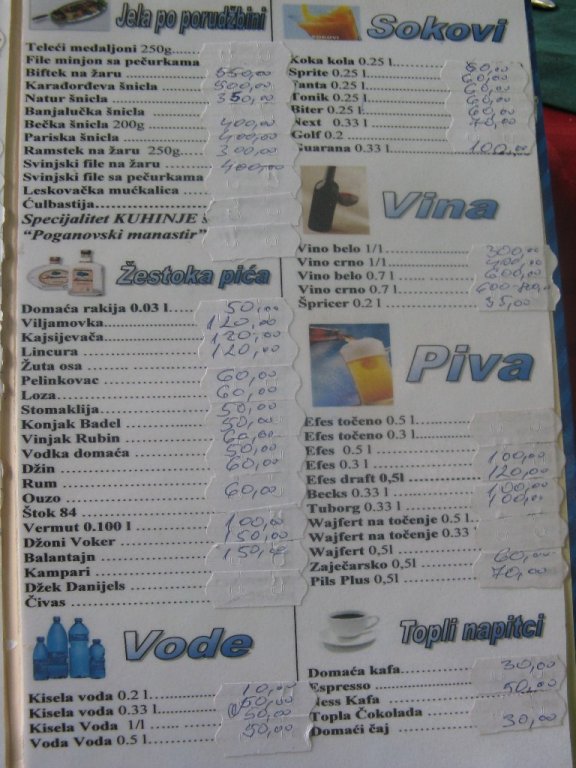 Jela po porudžbini
Teleći medaljoni 250g
File minjon sa pečurkama
Biftek na žaru 550,00
Karađorđeva šnicla 500,00
Natur šnicla 350,00
Banjalučka šnicla
Bečka šnicla 200g 400,00
Pariska šnicla 400,00
Ramstek na žaru 250g 300,00
Svinjski file na žaru 400,00
Svinjski file sa pečurkama
Leskovačka mućkalica
Ćulbastija
Specijalitet KUHINJE
"Poganovski manastir"
Žestoka pića
Domaća rakija 0.03 l 50,00
Viljamovka 120,00
Kajsijevača 120,00
Lincura 120,00
Žuta osa
Pelinkovac 60,00
Loza 60,00
Stomaklija 50,00
Konjak Badel 50,00
Vinjak Rubin 60,00
Vodka domaća 50,00
Džin 60,00
Rum
Ouzo 60,00
Štok 84
Vermut 0.100 l 100,00
Džoni Voker 150,00
Balantajn 150,00
Kampari
Džek Danijels
Čivas
Vode
Kisela voda 0.2 l 10,00
Kisela voda 0.33 l 50,00
Kisela Voda 1/l 50,00
Voda Voda 0.5 l 50,00
Sokovi
Koka kola 0.25 l 60,00
Sprite 0.25 l 60,00
Fanta 0.25 l 60,00
Tonik 0.25 l 60,00
Biter 0.25 l 60,00
Next 0.33 l 70,00
Golf 0.2
Guarana 0.33 l 100,00
Vina
Vino belo 1/l 300,00
Vino crno 1/l 400,00
Vino belo 0.7 l 600,00
Vino crno 0.7 l 600-700,00
Špricer 0.2 l 35,00
Piva
Efes točeno 0.5 l
Efes točeno 0.3 l
Efes 0.5 l 100,00
Efes 0.3 l
Efes draft 0,5l 120,00
Becks 0.33 l 100,00
Tuborg 0.33 l 100,00
Wajfert na točenje 0.5 l
Wajfert na točenje 0.33
Wajfert 0,5l
Zaječarsko 0,5l 60,00
Pils Plus 0,5l 70,00
Topli napitci
Domaća kafa 30,00
Espresso 50,00
Ness Kafa
Topla Čokolada
Domaći čaj 30,00